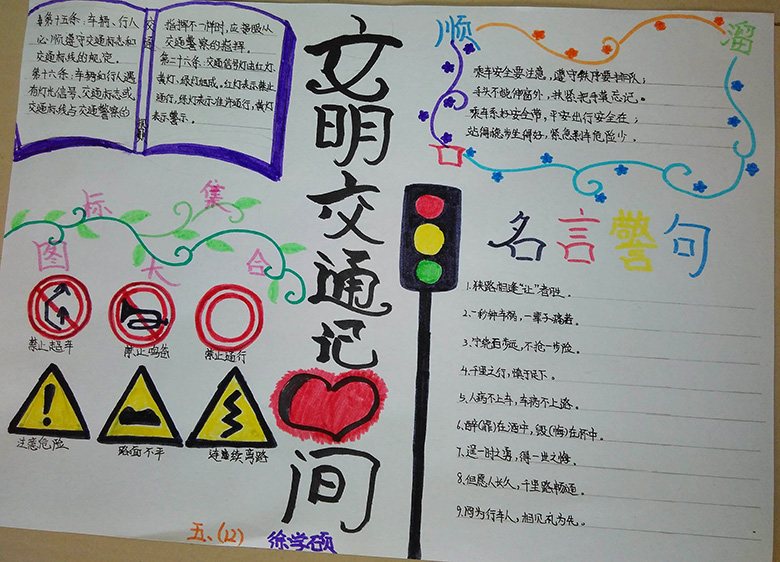 第十五条:车辆、行人
必顺遵守交通标志和
交通标线的规定。
第十六条:车辆和行人遇
有灯光信号、交通标志或
交通标线与交通警察的
交通
指挥不一样时,应当服从
交通警察的指挥。
第二十六条、交通信号灯由红灯、
黄灯、绿灯组成。红灯表示禁止
通行,绿灯表示准许通行,黄灯
表示警示。
文明交通记
间
顺
溜
口
乘车安全要注意,遵守秩序要排队;
手头不能伸窗外,扶紧把手莫忘记。
乘车系好安全带,平安出行安全在;
站稳
标集
图大合
禁止超车
禁止鸣笛
禁止通行
注意危险
路面不平
连续弯路
名言警句
1.狭路相逢“让”者胜。
2.一秒钟车祸,一辈子痛苦。
3.宁绕百步远,不抢一步险。
4.千里之行,慎于足下。
5.人病不上车,车病不上路。
6.醉(罪)在酒中,毁(悔)在杯中。
7.逞一时之勇,得一世之悔。
8.但愿人长久,千里路畅通。
9.同为行车人,相见礼为先。
五、(12)
徐学硕